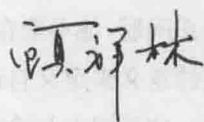 顾祥林